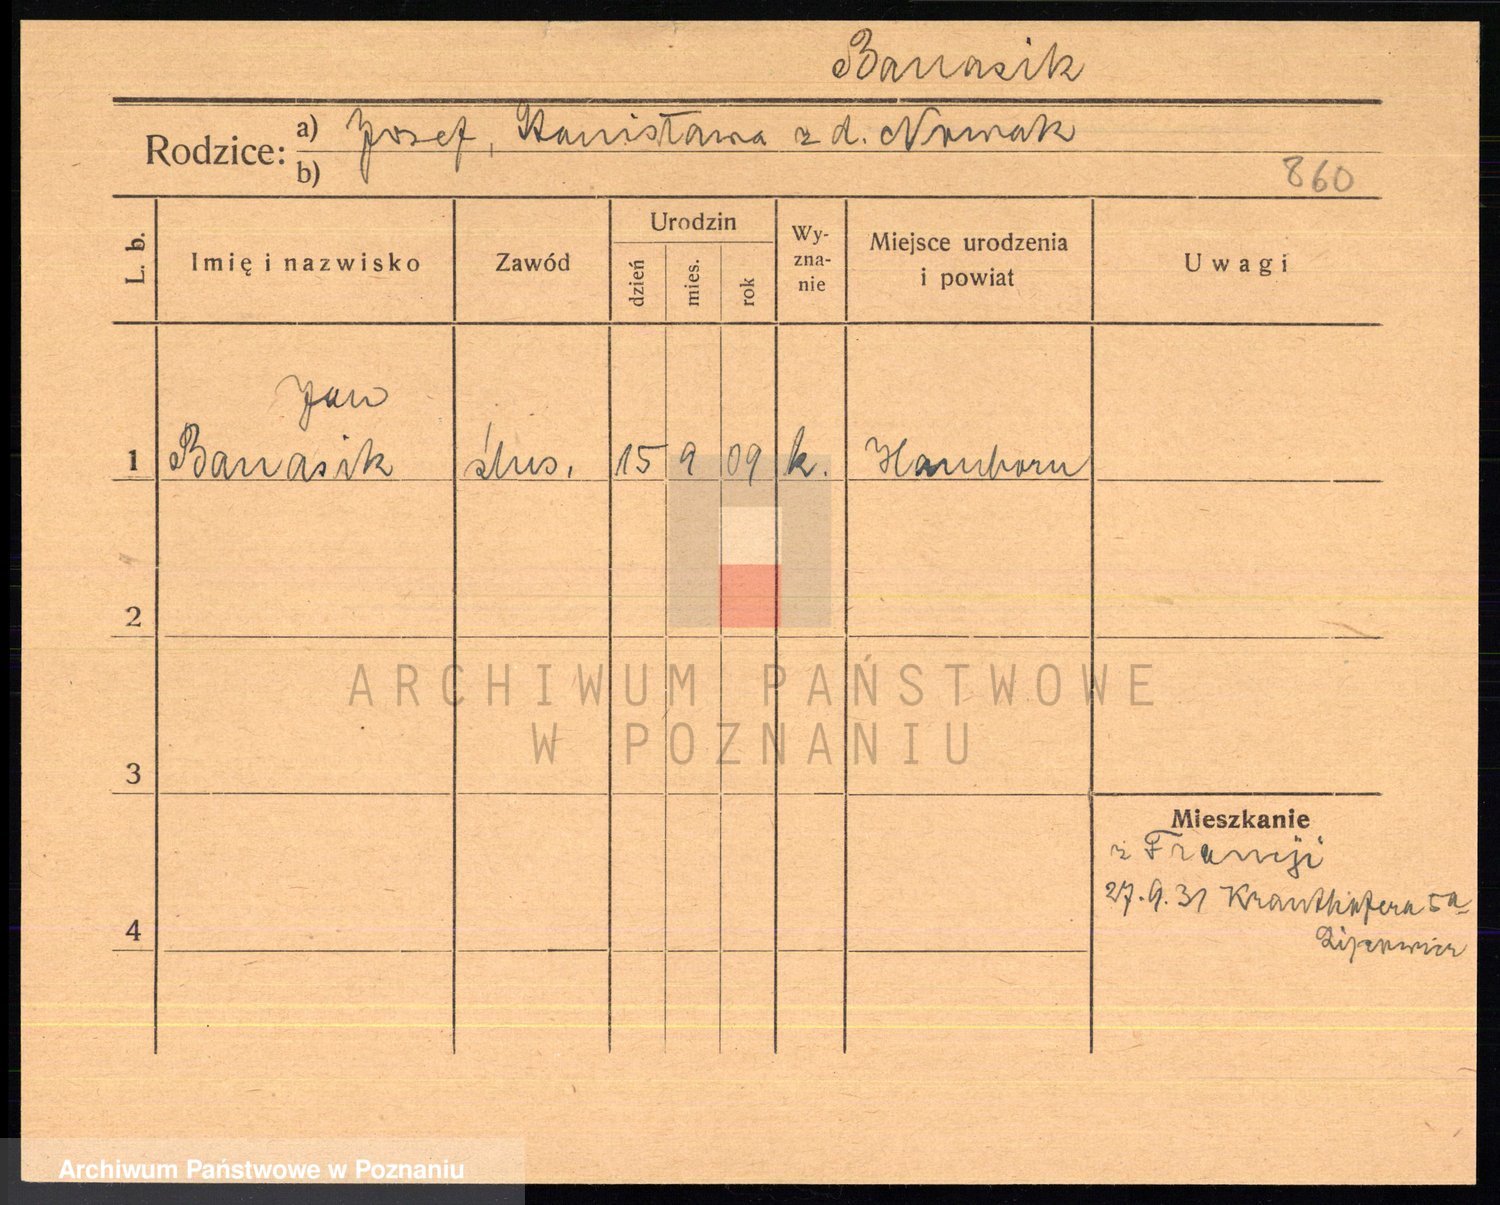 Banasik
Rodzice: a) Josef, Stanisława z d. Nowak
b)
860
L. b. Imię i nazwisko Zawód Urodzin dzień mies. rok Wy-zna-nie Miejsce urodzenia i powiat Uwagi
Jan
1 Banasik ślus. 15 9 09 k. Hamborn
2
3
4
Mieszkanie
z Francji
27.9.31 Krauthofera 5a
ARCHIWUM PAŃSTWOWE
W POZNANIU
Archiwum Państwowe w Poznaniu